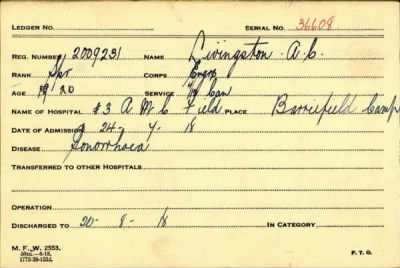 LEDGER NO. SERIAL NO. 36608
REG. NUMBER 2009231 NAME Livingston A.C.
RANK Spr CORPS Engrs
AGE 20 SERVICE Can
NAME OF HOSPITAL #3 A M C Field PLACE Barriefield Camp
DATE OF ADMISSION 24- 7- 18
DISEASE Gonorrhoea
TRANSFERRED TO OTHER HOSPITALS
OPERATION
DISCHARGED TO 20- 8- 18 IN CATEGORY
M. F. W. 2553.
P. T. O.
1772-39-1224.